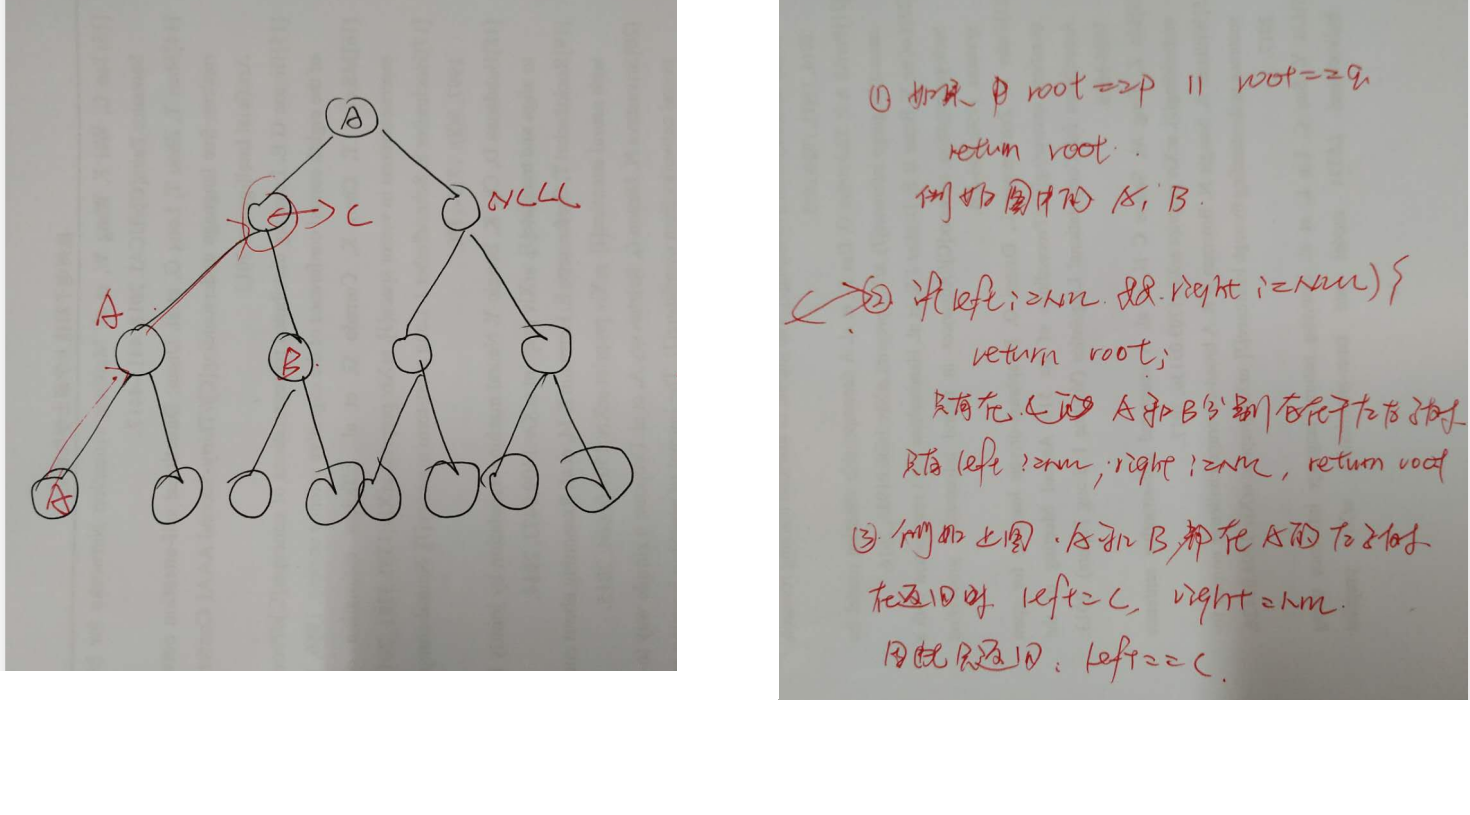 A
C
NULL
A
B
A
① 如果 root==p || root==q
return root.
例如图中的 A, B.
② if(left!=NULL && right!=NULL){
return root;
只有在 C A和B分别存在于左右子树
只有 left !=NULL, right !=NULL, return root
③ 例如上图. A和B,都在A的左子树
在返回时 left=C, right=NULL.
因此只返回: left==C.